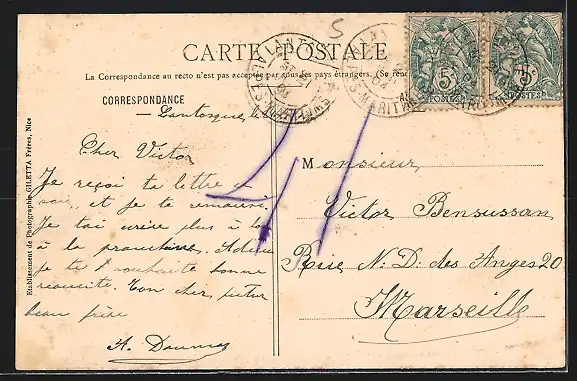 5
CARTE POSTALE
La Correspondance au recto n'est pas acceptée par tous les pays étrangers. (Se rend
CORRESPONDANCE
Lantosque, le
Cher Victor
Je reçoi ta lettre
soir, et je te remercie,
Je t'ai écrire plus à
à la prochaine. Adieu
je te souhaite bonne
réussite. Ton cher, futur
beau frère
A.
Etablissement de Photographie GILETTA Frères, Nice
Monsieur
Victor Bensussan
Rue N. D. des Anges 20
Marseille
5c
POSTES
5c
POSTES
ALPES-MARITIMES